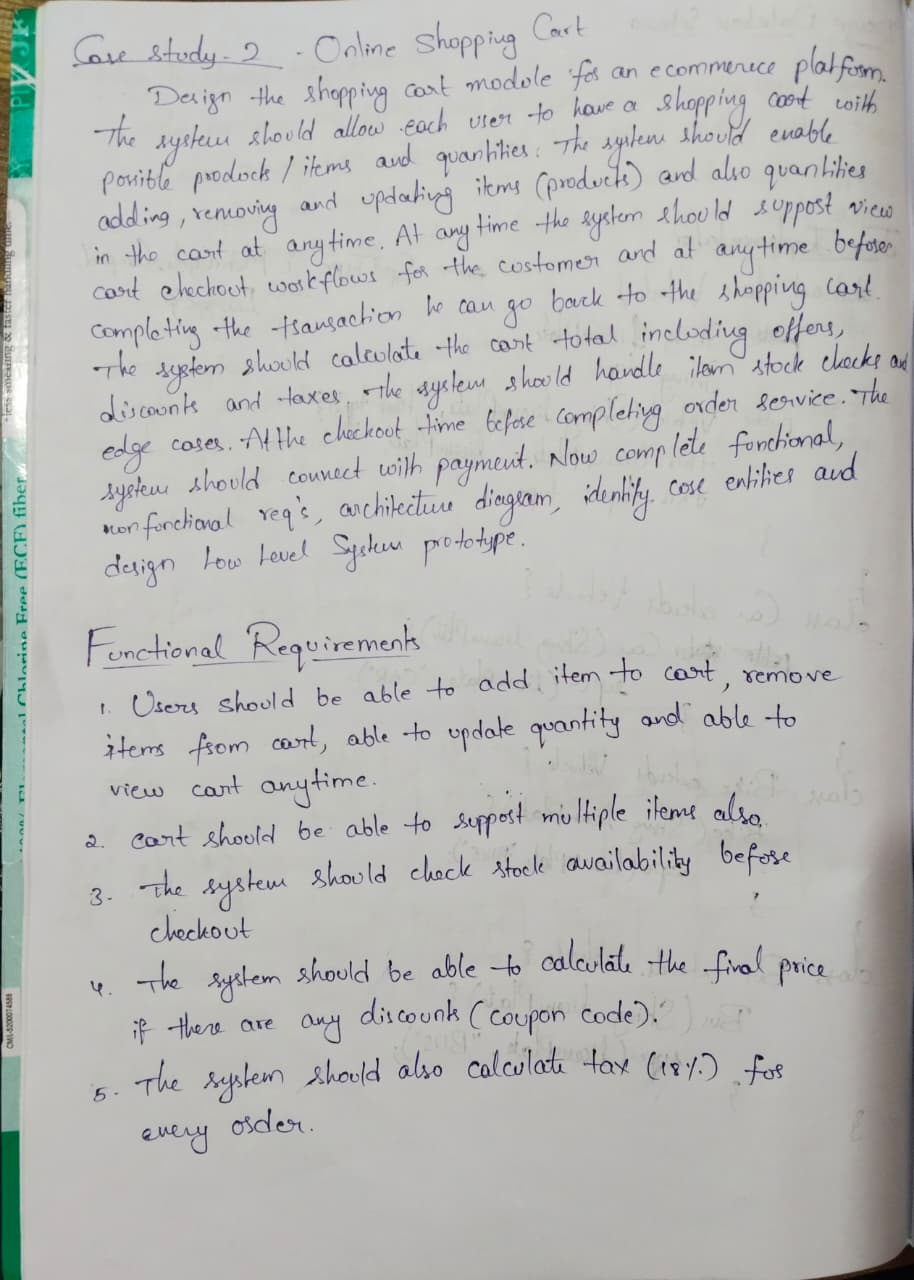 Case study-2 - Online Shopping Cart
Design the shopping cart module for an ecommerece platform.
The system should allow each user to have a shopping cart with
possible products / items and quantities. The system should enable
adding, removing and updating items (products) and also quantities
in the cart at anytime. At any time the system should support view
cart checkout workflows for the customer and at anytime before
completing the transaction he can go back to the shopping cart.
The system should calculate the cart total including offers,
discounts and taxes. The system should handle item stock checks and
edge cases. At the checkout time before completing order service. The
system should connect with payment. Now complete functional,
non functional req's, architecture diagram, identify core entities and
design Low Level System prototype.
Functional Requirements
1. Users should be able to add item to cart, remove
items from cart, able to update quantity and able to
view cart anytime.
2. cart should be able to support multiple items also.
3. The system should check stock availability before
checkout
4. The system should be able to calculate the final price
if there are any discounts (coupon code).
5. The system should also calculate tax (18%) for
every order.
less smearing & faster
Chlorine Free (ECF) fiber